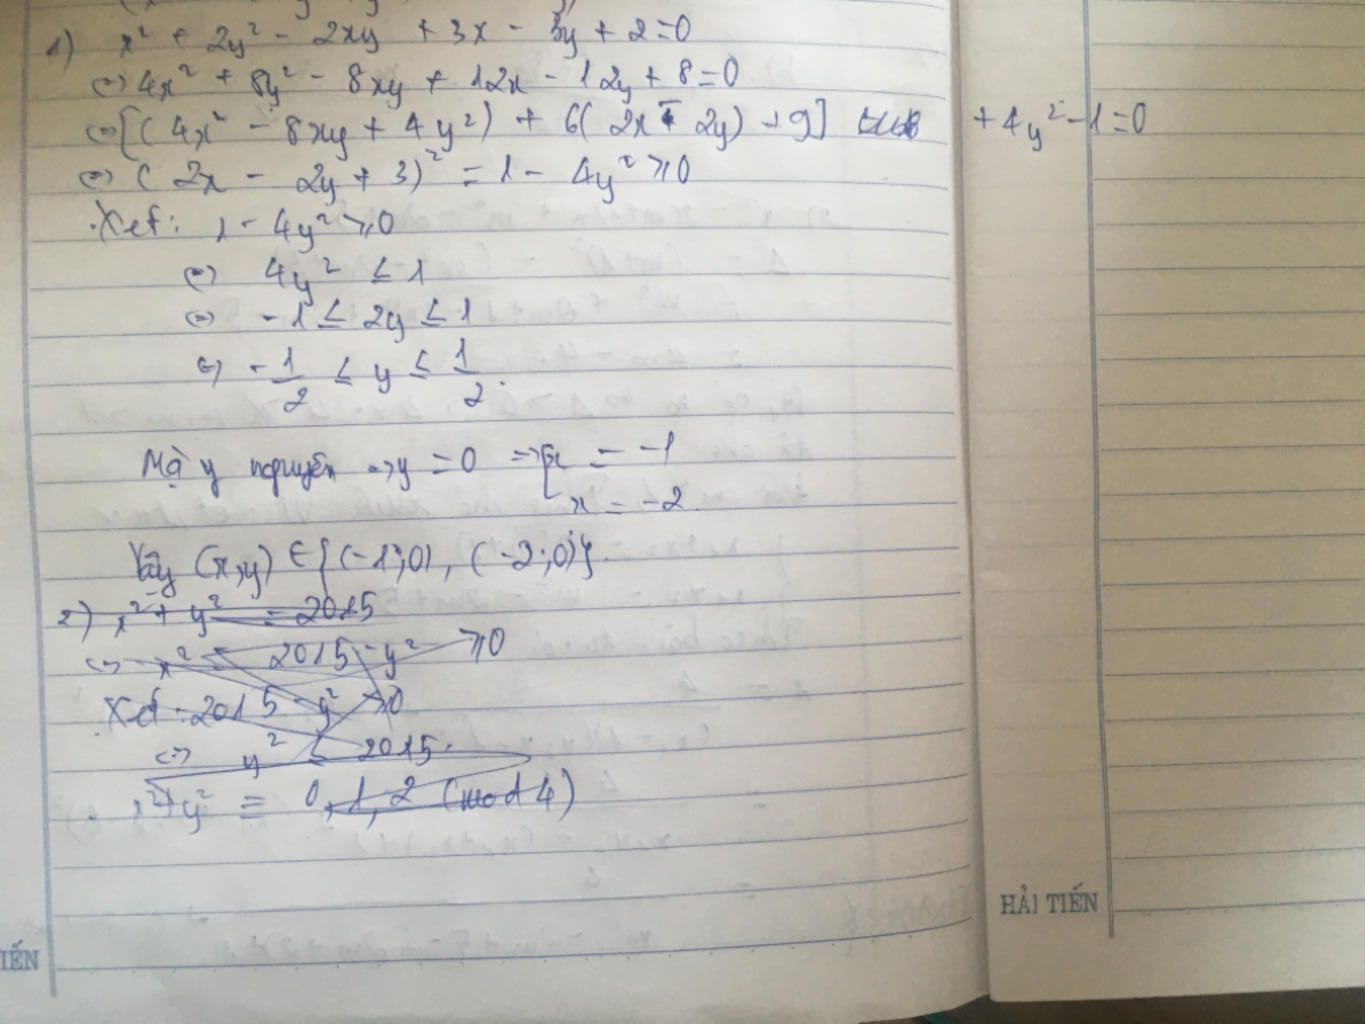 1) x² + 2y² - 2xy + 3x - 3y + 2 = 0
⇔ 4x² + 8y² - 8xy + 12x - 12y + 8 = 0
⇔ [(4x² - 8xy + 4y²) + 6(2x - 2y) + 9] + 4y² - 1 = 0
⇔ (2x - 2y + 3)² = 1 - 4y² ≥ 0
Xét: 1 - 4y² ≥ 0
⇔ 4y² ≤ 1
⇔ -1 ≤ 2y ≤ 1
⇔ -1/2 ≤ y ≤ 1/2.
Mà y nguyên ⇒ y = 0 ⇒ [x = -1
x = -2
Vậy (x,y) ∈ {(-1;0), (-2;0)}.
2) x² + y² = 2015
⇔ x² = 2015 - y² ≥ 0
Xét 2015 - y² ≥ 0
⇔ y² ≤ 2015.
x² + y² ≡ 0, 1, 2 (mod 4)
HẢI TIẾN
IẾN